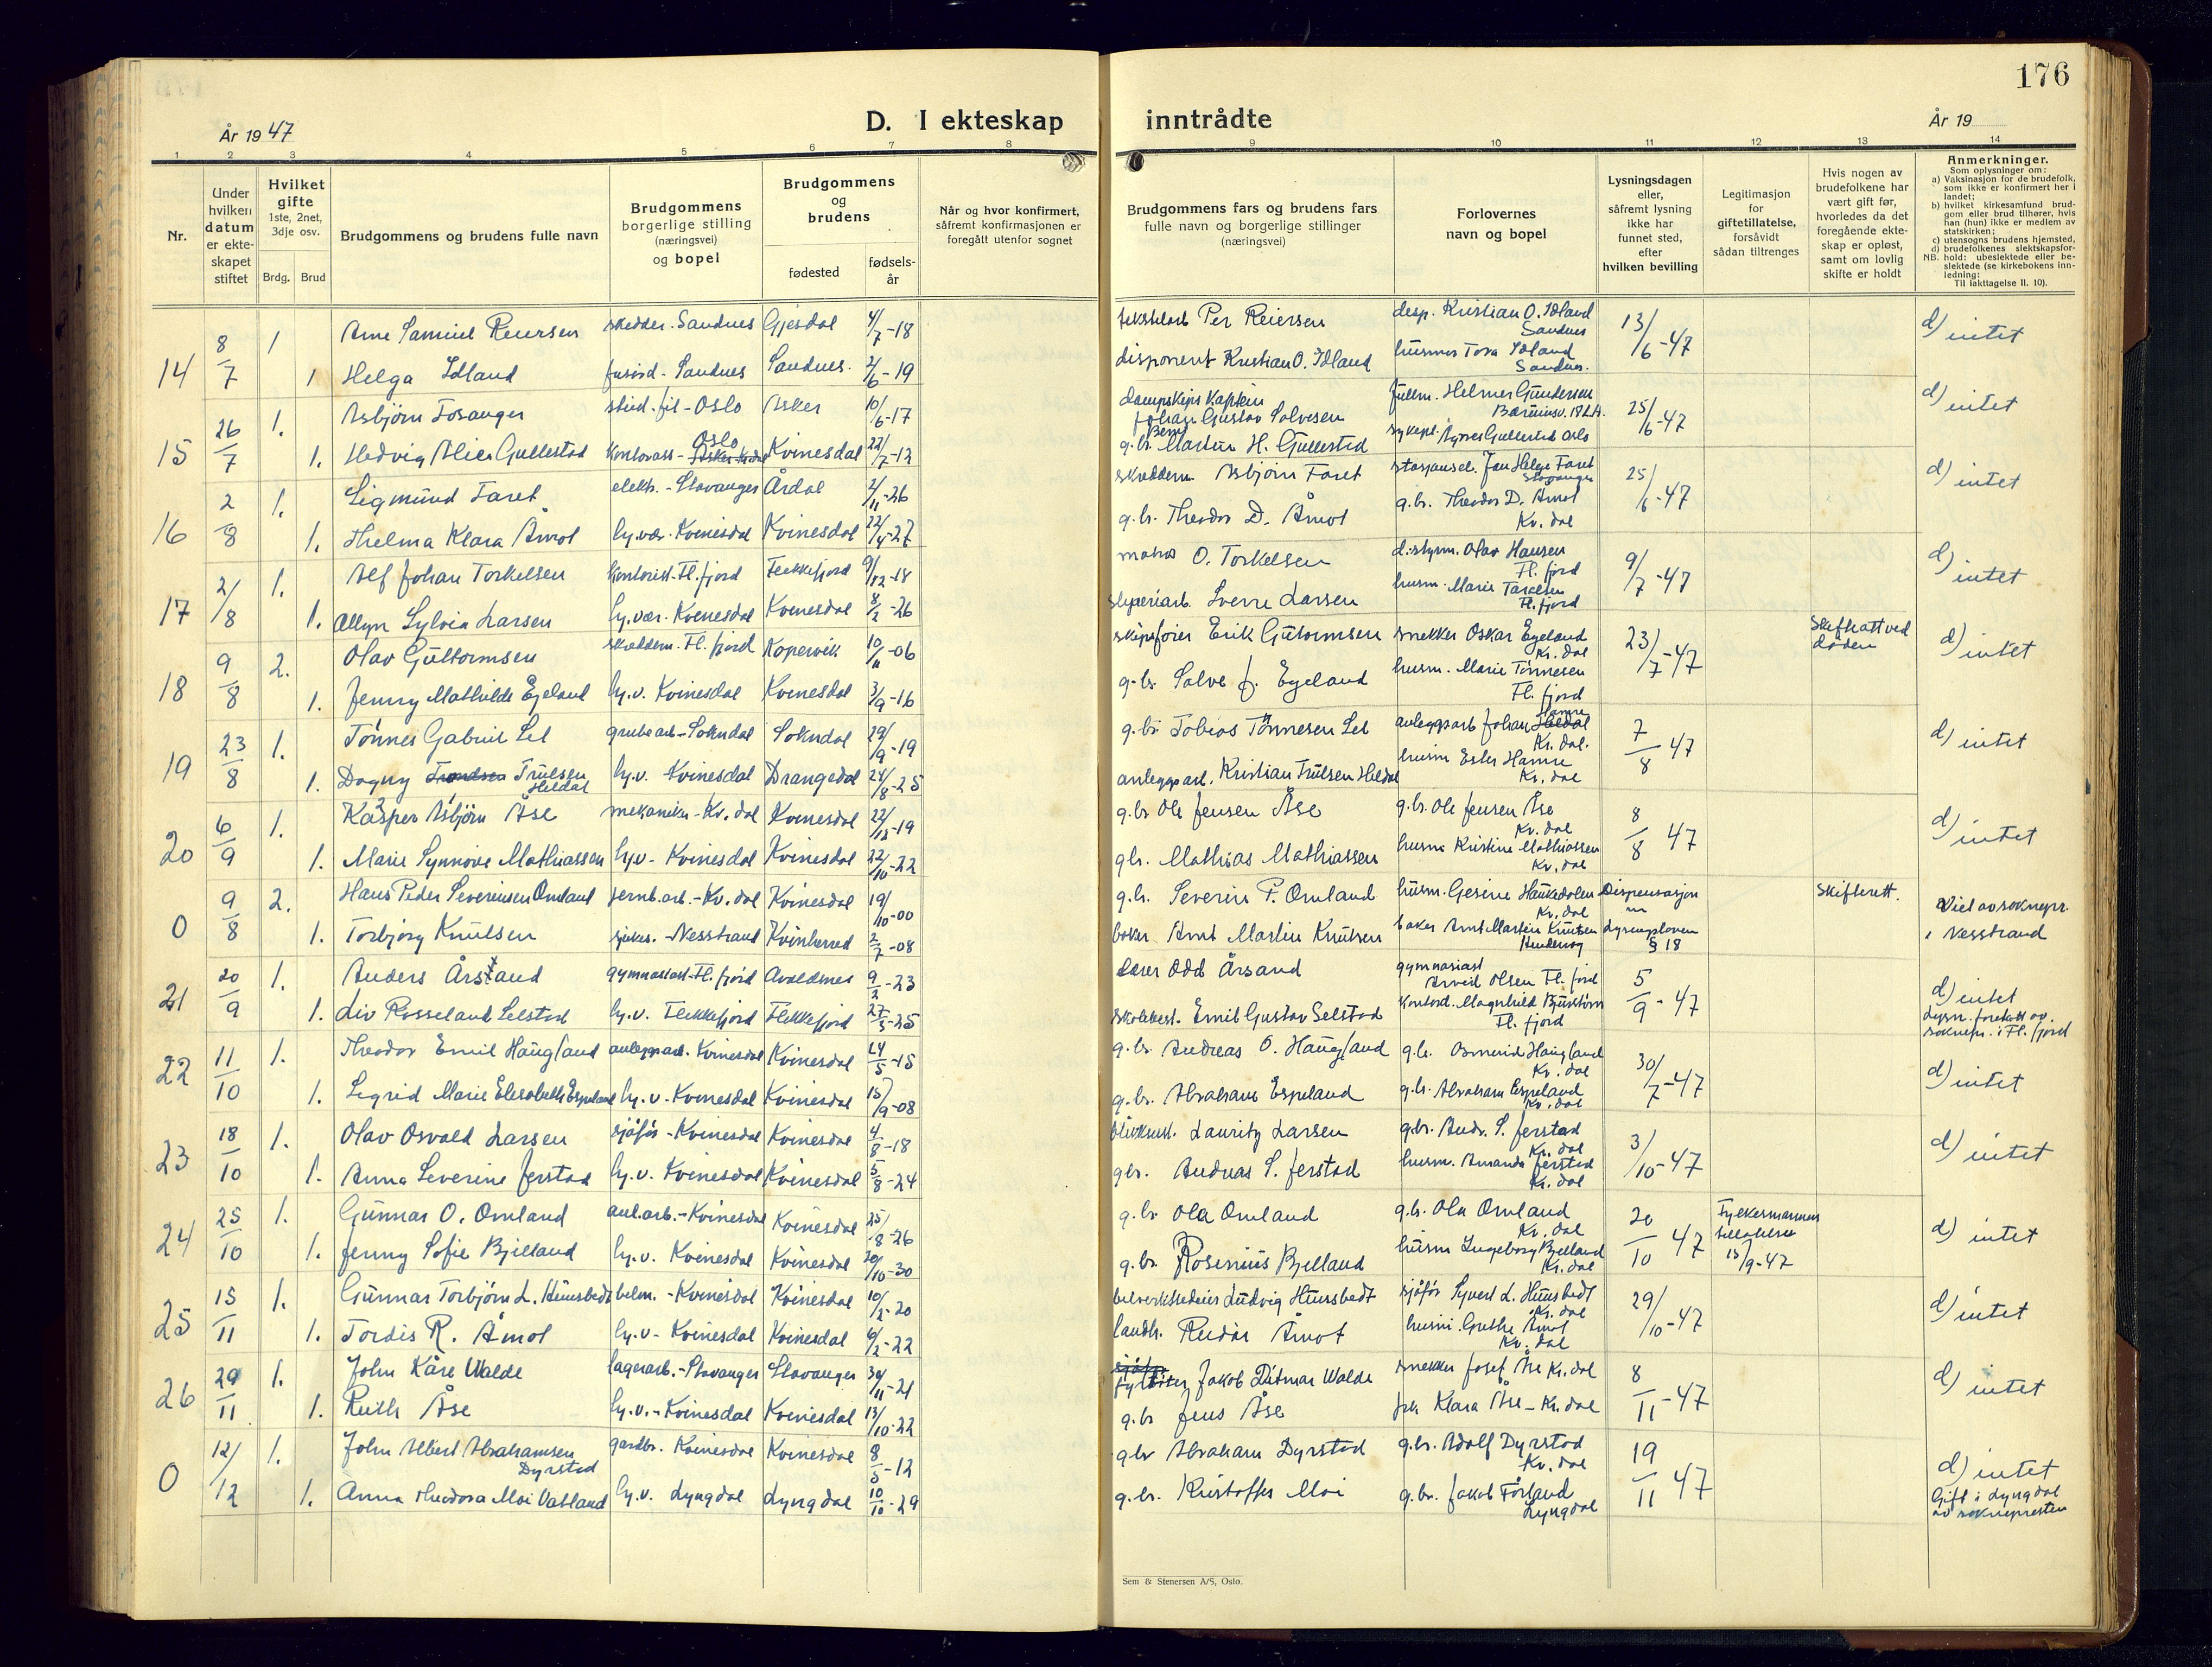 176
År 19 47
D. I ekteskap inntrådte
År 19
1 2 3 4 5 6 7 8 9 10 11 12 13 14
Nr.
Under hvilken datum er ekteskapet stiftet
Hvilket gifte
1ste, 2net, 3dje osv.
Brdg. Brud
Brudgommens og brudens fulle navn
Brudgommens borgerlige stilling (næringsvei) og bopel
Brudgommens og brudens
fødested
fødselsår
Når og hvor konfirmert, såfremt konfirmasjonen er foregått utenfor sognet
Brudgommens fars og brudens fars fulle navn og borgerlige stillinger (næringsvei)
Forlovernes navn og bopel
Lysningsdagen eller, såfremt lysning ikke har funnet sted, efter hvilken bevilling
Legitimasjon for giftetillatelse, forsåvidt sådan tiltrenges
Hvis nogen av brudefolkene har vært gift før, hvorledes da det foregående ekteskap er opløst, samt om lovlig skifte er holdt
Anmerkninger.
Som oplysninger om:
a) Vaksinasjon for de brudefolk, som ikke er konfirmert her i landet;
b) hvilket kirkesamfund brudgom eller brud tilhører, hvis han (hun) ikke er medlem av statskirken;
c) utensogns brudens hjemsted,
d) brudefolkenes slektskapsforhold: ubeslektede eller beslektede (se kirkebokens innledning:
NB. Til iakttagelse II. 10).
14 8/7 1 Arne Samuel Reiersen skredder. Sandnes Gjesdal 4/7-18 Per Reiersen desp. Kristian O. Idland Sandnes 13/6-47 d) intet
1 Helga Idland Sandnes Sandnes. 2/6-19 disponent Kristian O. Idland husmor Tora Idland Sandnes.
15 26/7 1. Asbjørn Fosanger stud. fil-Oslo Asker 10/6-17 Dampskips Kaptein Johan Gustav Salvesen fullm. Helmer Gundersen 25/6-47 d) intet
1. Hedvig Alice Gullestad kontorass- Oslo Kvinesdal 22/7-12 g.br. Martin H. Gullestad sykepl. Agnes Gullestad Oslo
16 2/8 1. Sigmund Faret elektr. - Stavanger Årdal 2/11-26 skreddern. Asbjørn Faret Jan Helge Faret Stavanger 25/6-47 d) intet
1. Thelma Klara Åmot hj.vær. Kvinesdal Kvinesdal 22/4-27 g.br. Theodor D. Åmot g.br. Theodor D. Åmot Kv. dal
17 2/8 1. Alf Johan Torkelsen kontorist-Fl.fjord Flekkefjord 9/12-18 O. Torkelsen d:styrm. Olav Hansen Fl. fjord 9/7-47 d) intet
1. Allyn Sylvia Larsen hj.vær. Kvinesdal Kvinesdal 8/2-26 sliperiarb. Sverre Larsen husm. Marie Fl.fjord
18 9/8 2. Olav Guttormsen skreddern. Fl. fjord Kopervik 10/11-06 skipsfører Erik Guttormsen snekker Oskar Egeland Kv. dal 23/7-47 Skifteatt ved døden d) intet
1. Jenny Mathilde Egeland hj.v. Kvinesdal Kvinesdal 3/9-16 g.br. Salve J. Egeland husm. Marie Tønnesen Fl. fjord
19 23/8 1. Tønnes Gabriel Sel grubearb-Sokndal Sokndal 29/9-19 g.br. Tobias Tønnesen Sel anleggsarb Johan Hamre Kv. dal. 7/8 47 d) intet
1. Dagny Trulsen Heldal hj.v. Kvinesdal Drangedal 24/8-25 anleggsarb. Kristian Trulsen Heldal husm Ester Hamre Kv. dal
20 6/9 1. Kasper Asbjørn Åse mekaniker - Kv. dal Kvinesdal 22/12-19 g.br. Ole Jensen Åse g.br. Ole Jensen Åse Kv. dal 8/8 47 d) intet
1. Marie Synnøve Mathiassen hj.v- Kvinesdal Kvinesdal 22/10-22 gbr. Mathias Mathiassen husm Kristine Mathiassen Kv. dal
0 9/8 2. Hans Peder Severinsen Omland jernb.arb.-Kv. dal Kvinesdal 19/10-00 g.br. Severin P. Omland husm. Gesine Haukedalen Kv. dal Dispensasjon Skifterett. Viet av sokнepr. i Nesstrand
1. Torbjørg Knutsen - Nesstrand Kvinherred 2/7-08 baker Arnt Martin Knutsen baker Arnt Martin Knutsen § 18
21 20/9 1. Anders Årsand gymnasiast-Fl. fjord Avaldsnes 9/2-23 Lærer Odd Årsand gymnasiast Arvid Olsen Fl. fjord 5/9-47 d) intet
1. Liv Rosseland Selstad hj.v. Flekkefjord Flekkefjord 27/3-25 skolebest. Emil Gustav Selstad kontord. Magnhild Fl. fjord Lysn. foretatt av soknepr. i Fl. fjord
22 11/10 1. Theodor Emil Haugland anleggsarb. Kvinesdal Kvinesdal 24/5-15 g.br. Andreas O. Haugland g.br. Osmund Haugland Kv. dal 30/7-47 d) intet
1. Sigrid Marie Elisabeth Espeland hj.v. Kvinesdal Kvinesdal 15/9-08 g.br. Abraham Espeland g.br. Abraham Espeland Kv. dal
23 18/10 1. Olav Osvald Larsen sjåfør - Kvinesdal Kvinesdal 4/8-18 Lauritz Larsen g.br. Andr. S. Jerstad Kv. dal 3/10-47 d) intet
1. Anna Severine Jerstad hj.v. Kvinesdal Kvinesdal 5/8-24 gbr. Andreas S. Jerstad husm. Amanda Jerstad Kv. dal
24 25/10 1. Gunnar O. Omland anl.arb.-Kvinesdal Kvinesdal 25/8-26 g.br. Ola Omland g.br. Ola Omland Kv. dal 20/10 47 Fylkesmannens tillatelse 15/9-47 d) intet
1. Jenny Sofie Bjelland hj.v. Kvinesdal Kvinesdal 20/10-30 g.br. Rosenius Bjelland husm Ingeborg Bjelland Kv. dal
25 15/11 1. Gunnar Torbjørn L. Hunsbedt - Kvinesdal Kvinesdal 10/2-20 Ludvig Hunsbedt sjåfør Syvert L. Hunsbedt Kv. dal 29/10-47 d) intet
1. Tordis R. Åmot hj.v- Kvinesdal Kvinesdal 6/2-22 landh. Reidar Åmot husm. Grethe Åmot Kv. dal
26 29/11 1. John Kåre Walde lagerarb.-Stavanger Stavanger 30/11-21 fyrbøter Jakob Ditmar Walde snekker Josef Åse Kv. dal 8/11-47 d) intet
1. Ruth Åse hj.v.-Kvinesdal Kvinesdal 13/10-22 g.br Jens Åse frk Klara Åse - Kv. dal
0 12/12 1. John Albert Abrahamsen Dyrstad gardbr. Kvinesdal Kvinesdal 8/5-12 gbr Abraham Dyrstad g.br. Adolf Dyrstad Kv. dal 19/11 47 d) intet
1. Anna Theodora Moi Vatland hj.v. Lyngdal Lyngdal 10/10-29 g.br. Kristoffer Moi g.br. Jakob Førland Lyngdal Gift i Lyngdal av sokнepresten
Sem & Stenersen A/S, Oslo.